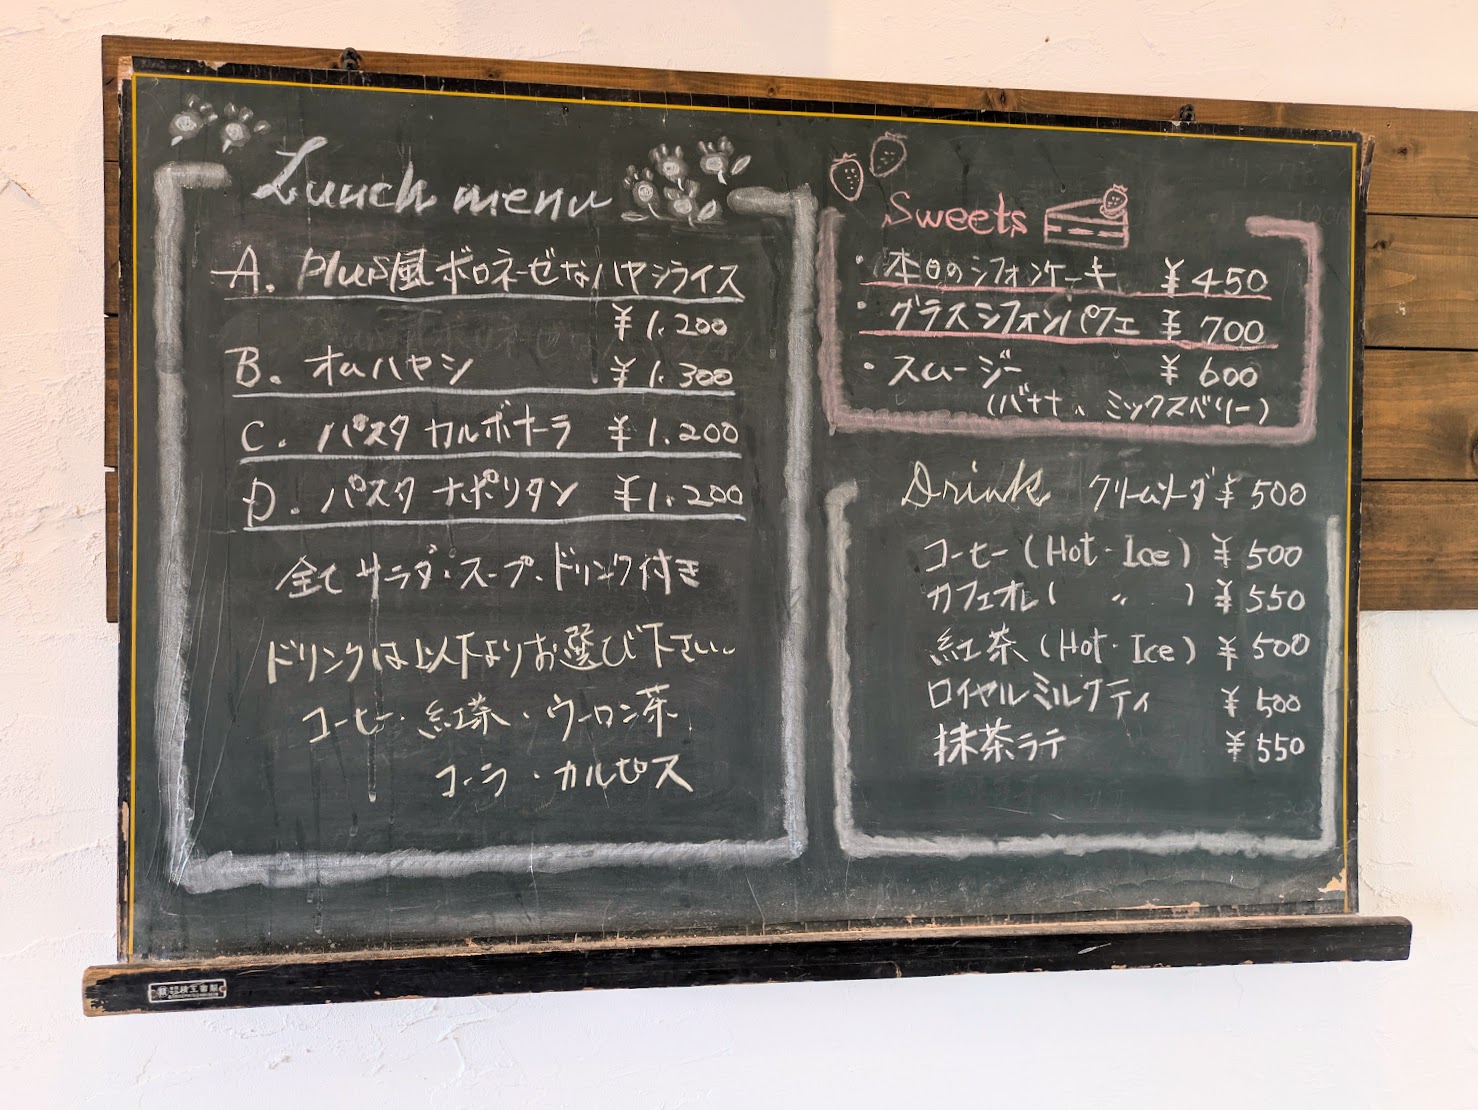 Lunch menu
A. Plus風ボロネーゼなハヤシライス
¥1.200
B. オムハヤシ ¥1.300
C. パスタ カルボナーラ ¥1.200
D. パスタ ナポリタン ¥1.200
全てサラダ・スープ・ドリンク付き
ドリンクは以下よりお選び下さい。
コーヒー・紅茶・ウーロン茶
コーラ・カルピス
Sweets
・本日のシフォンケーキ ¥450
・グラスシフォンパフェ ¥700
・スムージー ¥600
(バナナ、ミックスベリー)
Drink クリームソーダ ¥500
コーヒー(Hot・Ice) ¥500
カフェオレ( 〃 ) ¥550
紅茶(Hot・Ice) ¥500
ロイヤルミルクティ ¥500
抹茶ラテ ¥550